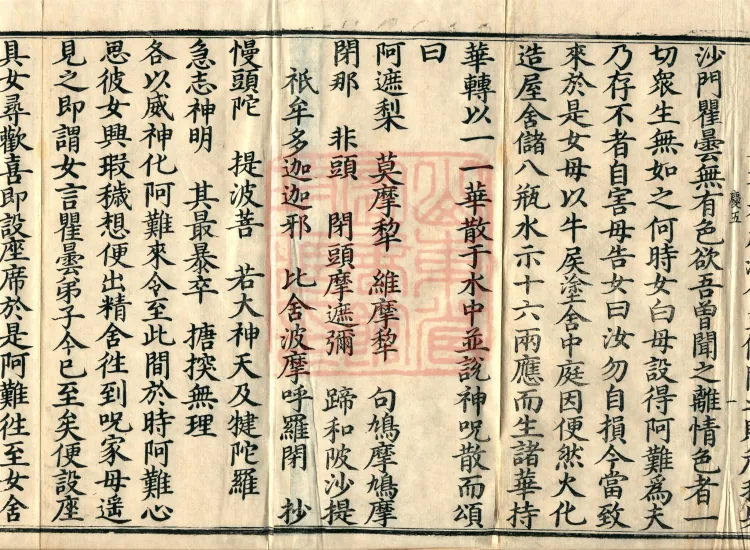 慶五
一
沙門瞿曇無有色欲吾曾聞之離情色者一
切衆生無如之何時女白母設得阿難爲夫
乃存不者自害母告女曰汝勿自損今當致
來於是女母以牛屎塗舍中庭因便然火化
造屋舍儲八瓶水示十六兩應而生諸華持
華轉以一一華散于水中並説神呪散而頌
曰
阿遮梨　莫摩犂　維摩犂　句鳩摩鳩摩
閉那　非頭　閉頭摩遮彌　蹄和陂沙提
祇牟多迦迦邪　比舍波摩呼羅閉　抄
慢頭陀　提波菩　若大神天及犍陀羅
急志神明　其最暴卒　搪揬無理
各以威神化阿難來令至此間於時阿難心
思彼女興瑕穢想便出精舍往到呪家母遥
見之即謂女言瞿曇弟子今已至矣便設座
具女尋歡喜即設座席於是阿難往至女舍